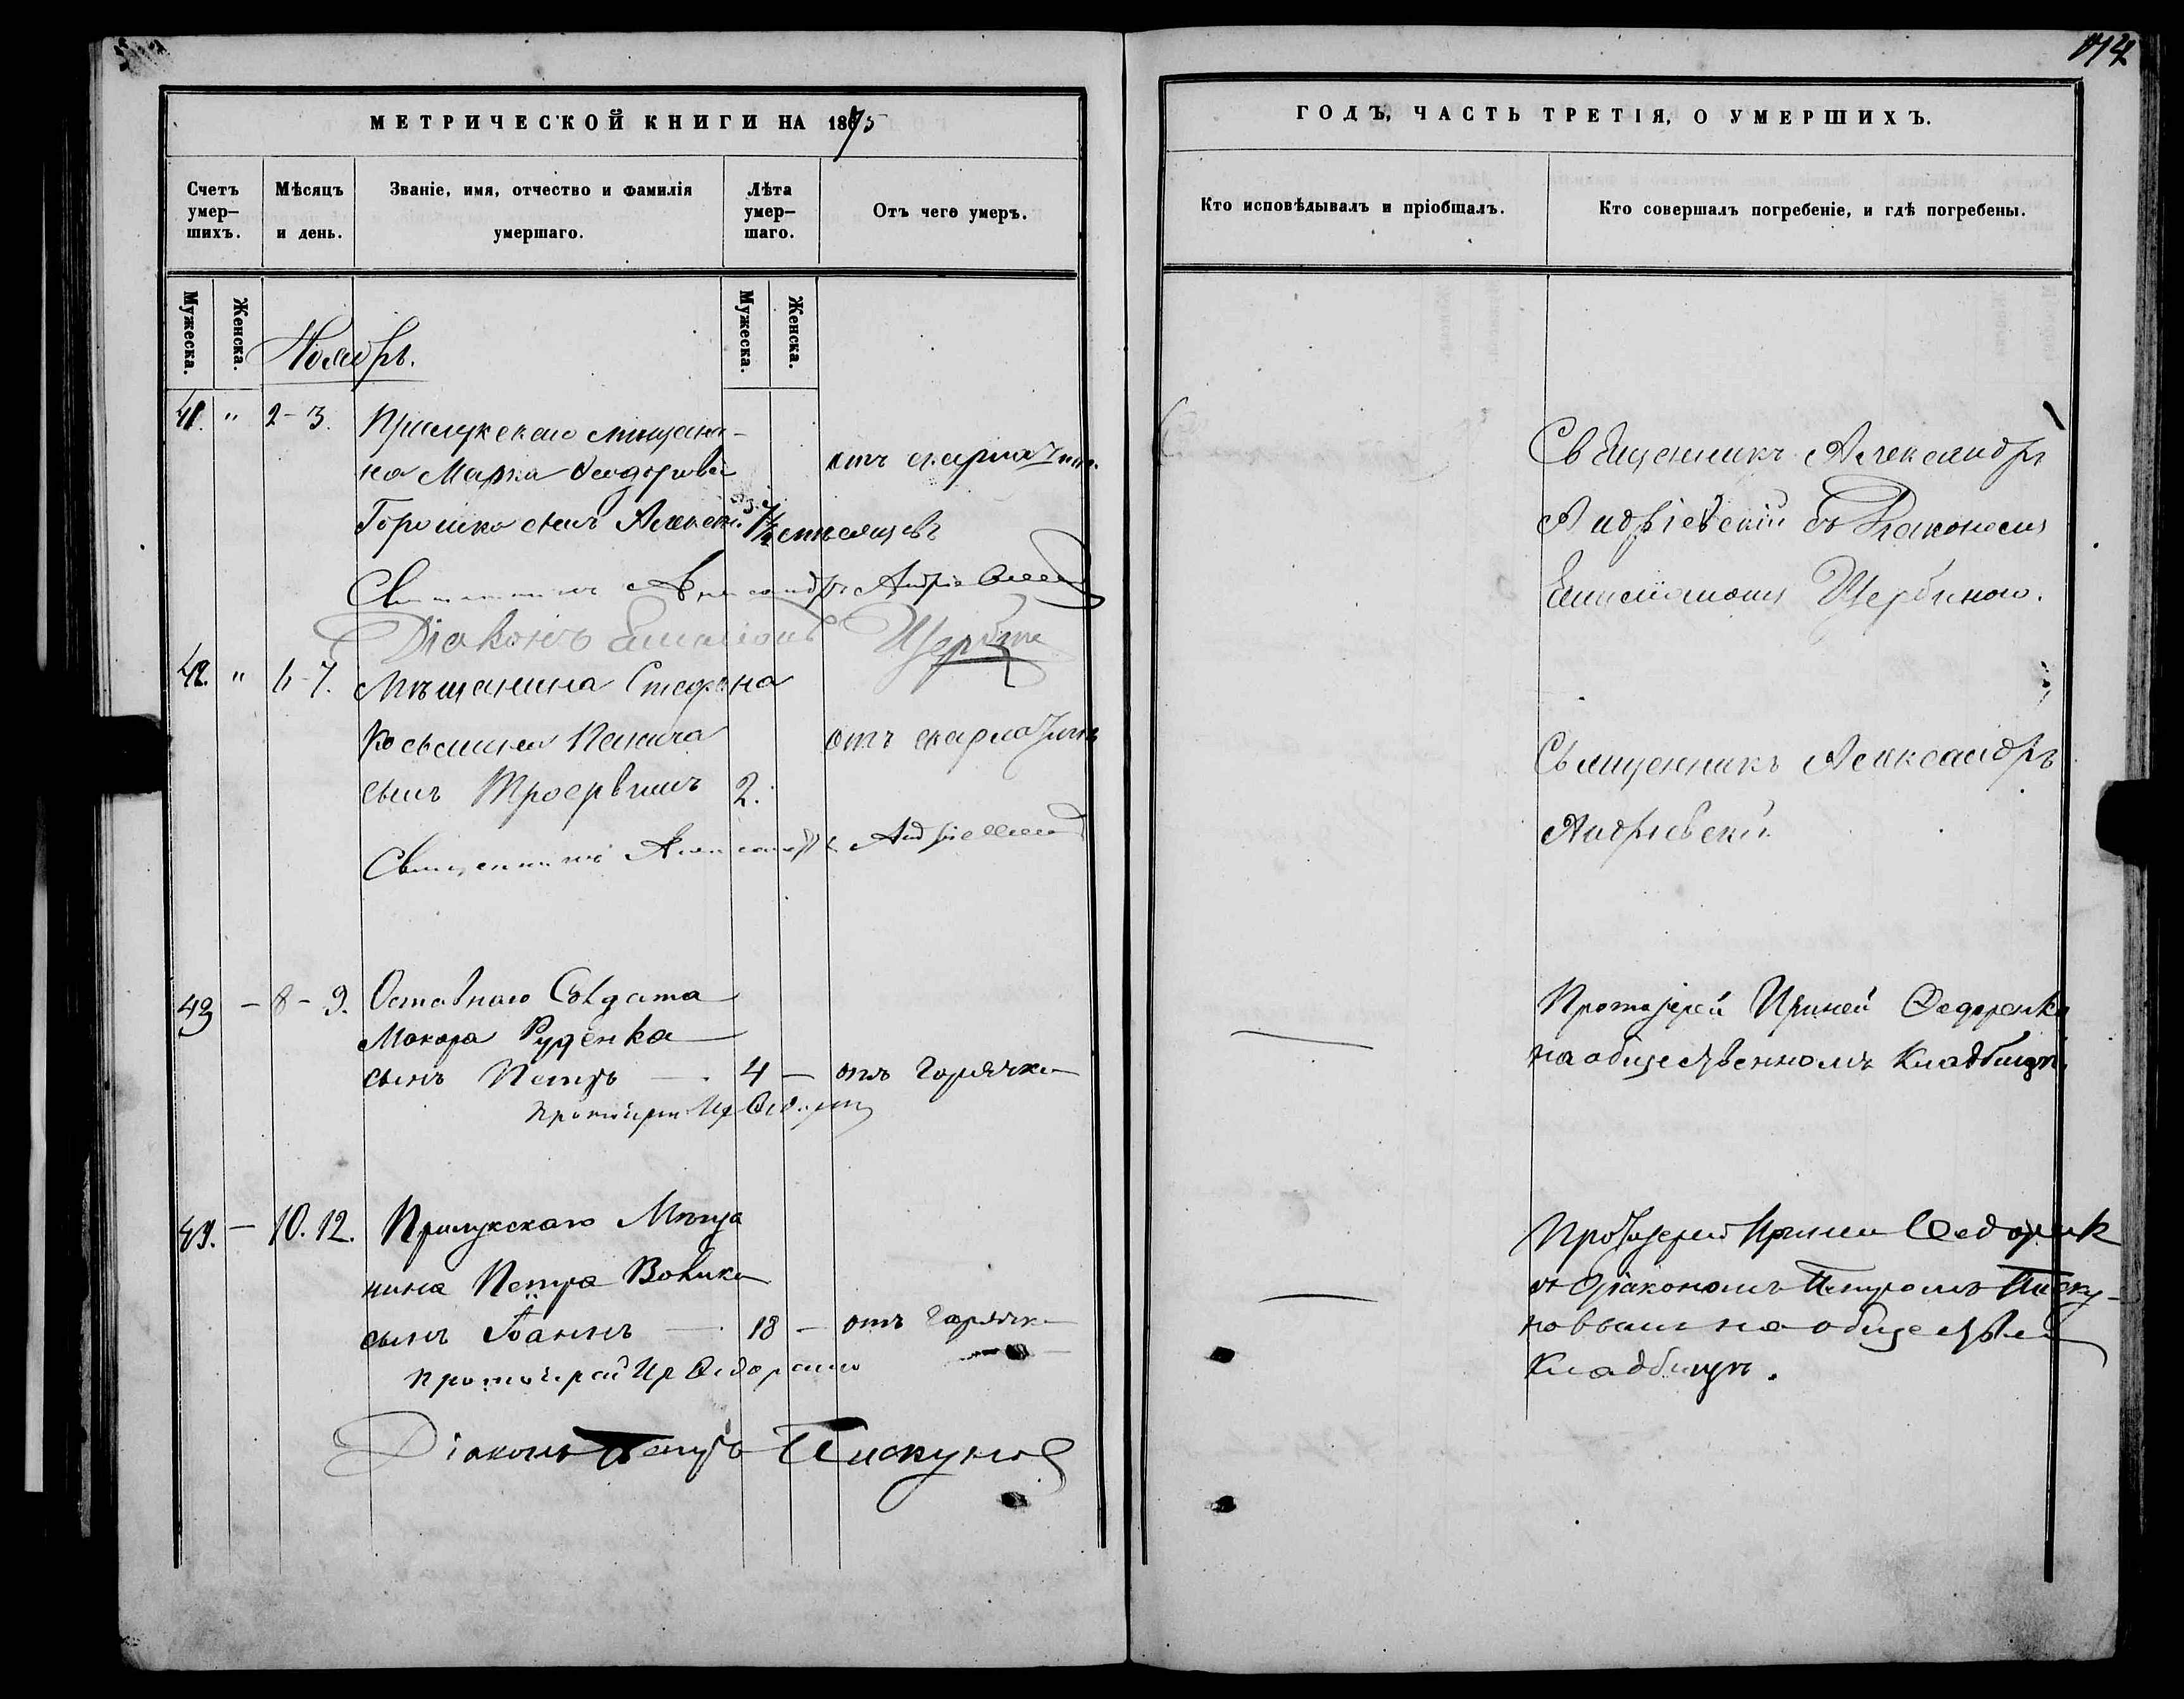 114
МЕТРИЧЕСКОЙ КНИГИ НА 1875
Счетъ умер-шихъ.
Мѣсяцъ и день.
Званіе, имя, отчество и фамилія умершаго.
Лѣта умер-шаго.
Отъ чего умеръ.
Мужеска.
Женска.
Мужеска.
Женска.
Ноябрь.
41. " 2-3. Прилукскаго мищани-
на Марка Ѳеодорова отъ скарлатин.
Горошко сынъ Алексѣй. мѣсяцевъ
Священникъ Александръ Андріевскій
Діаконъ Емиліанъ Щербина
42. " 6-7. Мѣщанина Стефана
Косьмина отъ скарлатины
сынъ 2.
Священникъ Александръ Андріевскій
43 - 8-9. Отставнаго Солдата
Макара Руденка
сынъ Петръ - 4 - отъ горячки
протоіерей Ир Ѳедоренко
44. - 10. 12. Прилукскаго Мѣща
нина Петра Вовика
сынъ Іоаннъ - 18 - отъ горячки
протоіерей Ир Ѳедоренко
Діаконъ Петръ Пискуновъ
ГОДЪ, ЧАСТЬ ТРЕТІЯ, О УМЕРШИХЪ.
Кто исповѣдывалъ и пріобщалъ.
Кто совершалъ погребеніе, и гдѣ погребены.
Священникъ Александръ
Андріевскій съ Діакономъ
Емиліаномъ Щербиною.
Священникъ Александръ
Андріевскій.
Протоіерей Ириней Ѳедоренко
на общественномъ кладбищѣ
Протоіерей Ириней Ѳедоренк
съ діакономъ Петромъ Писку-
новымъ на обществен
кладбищѣ.